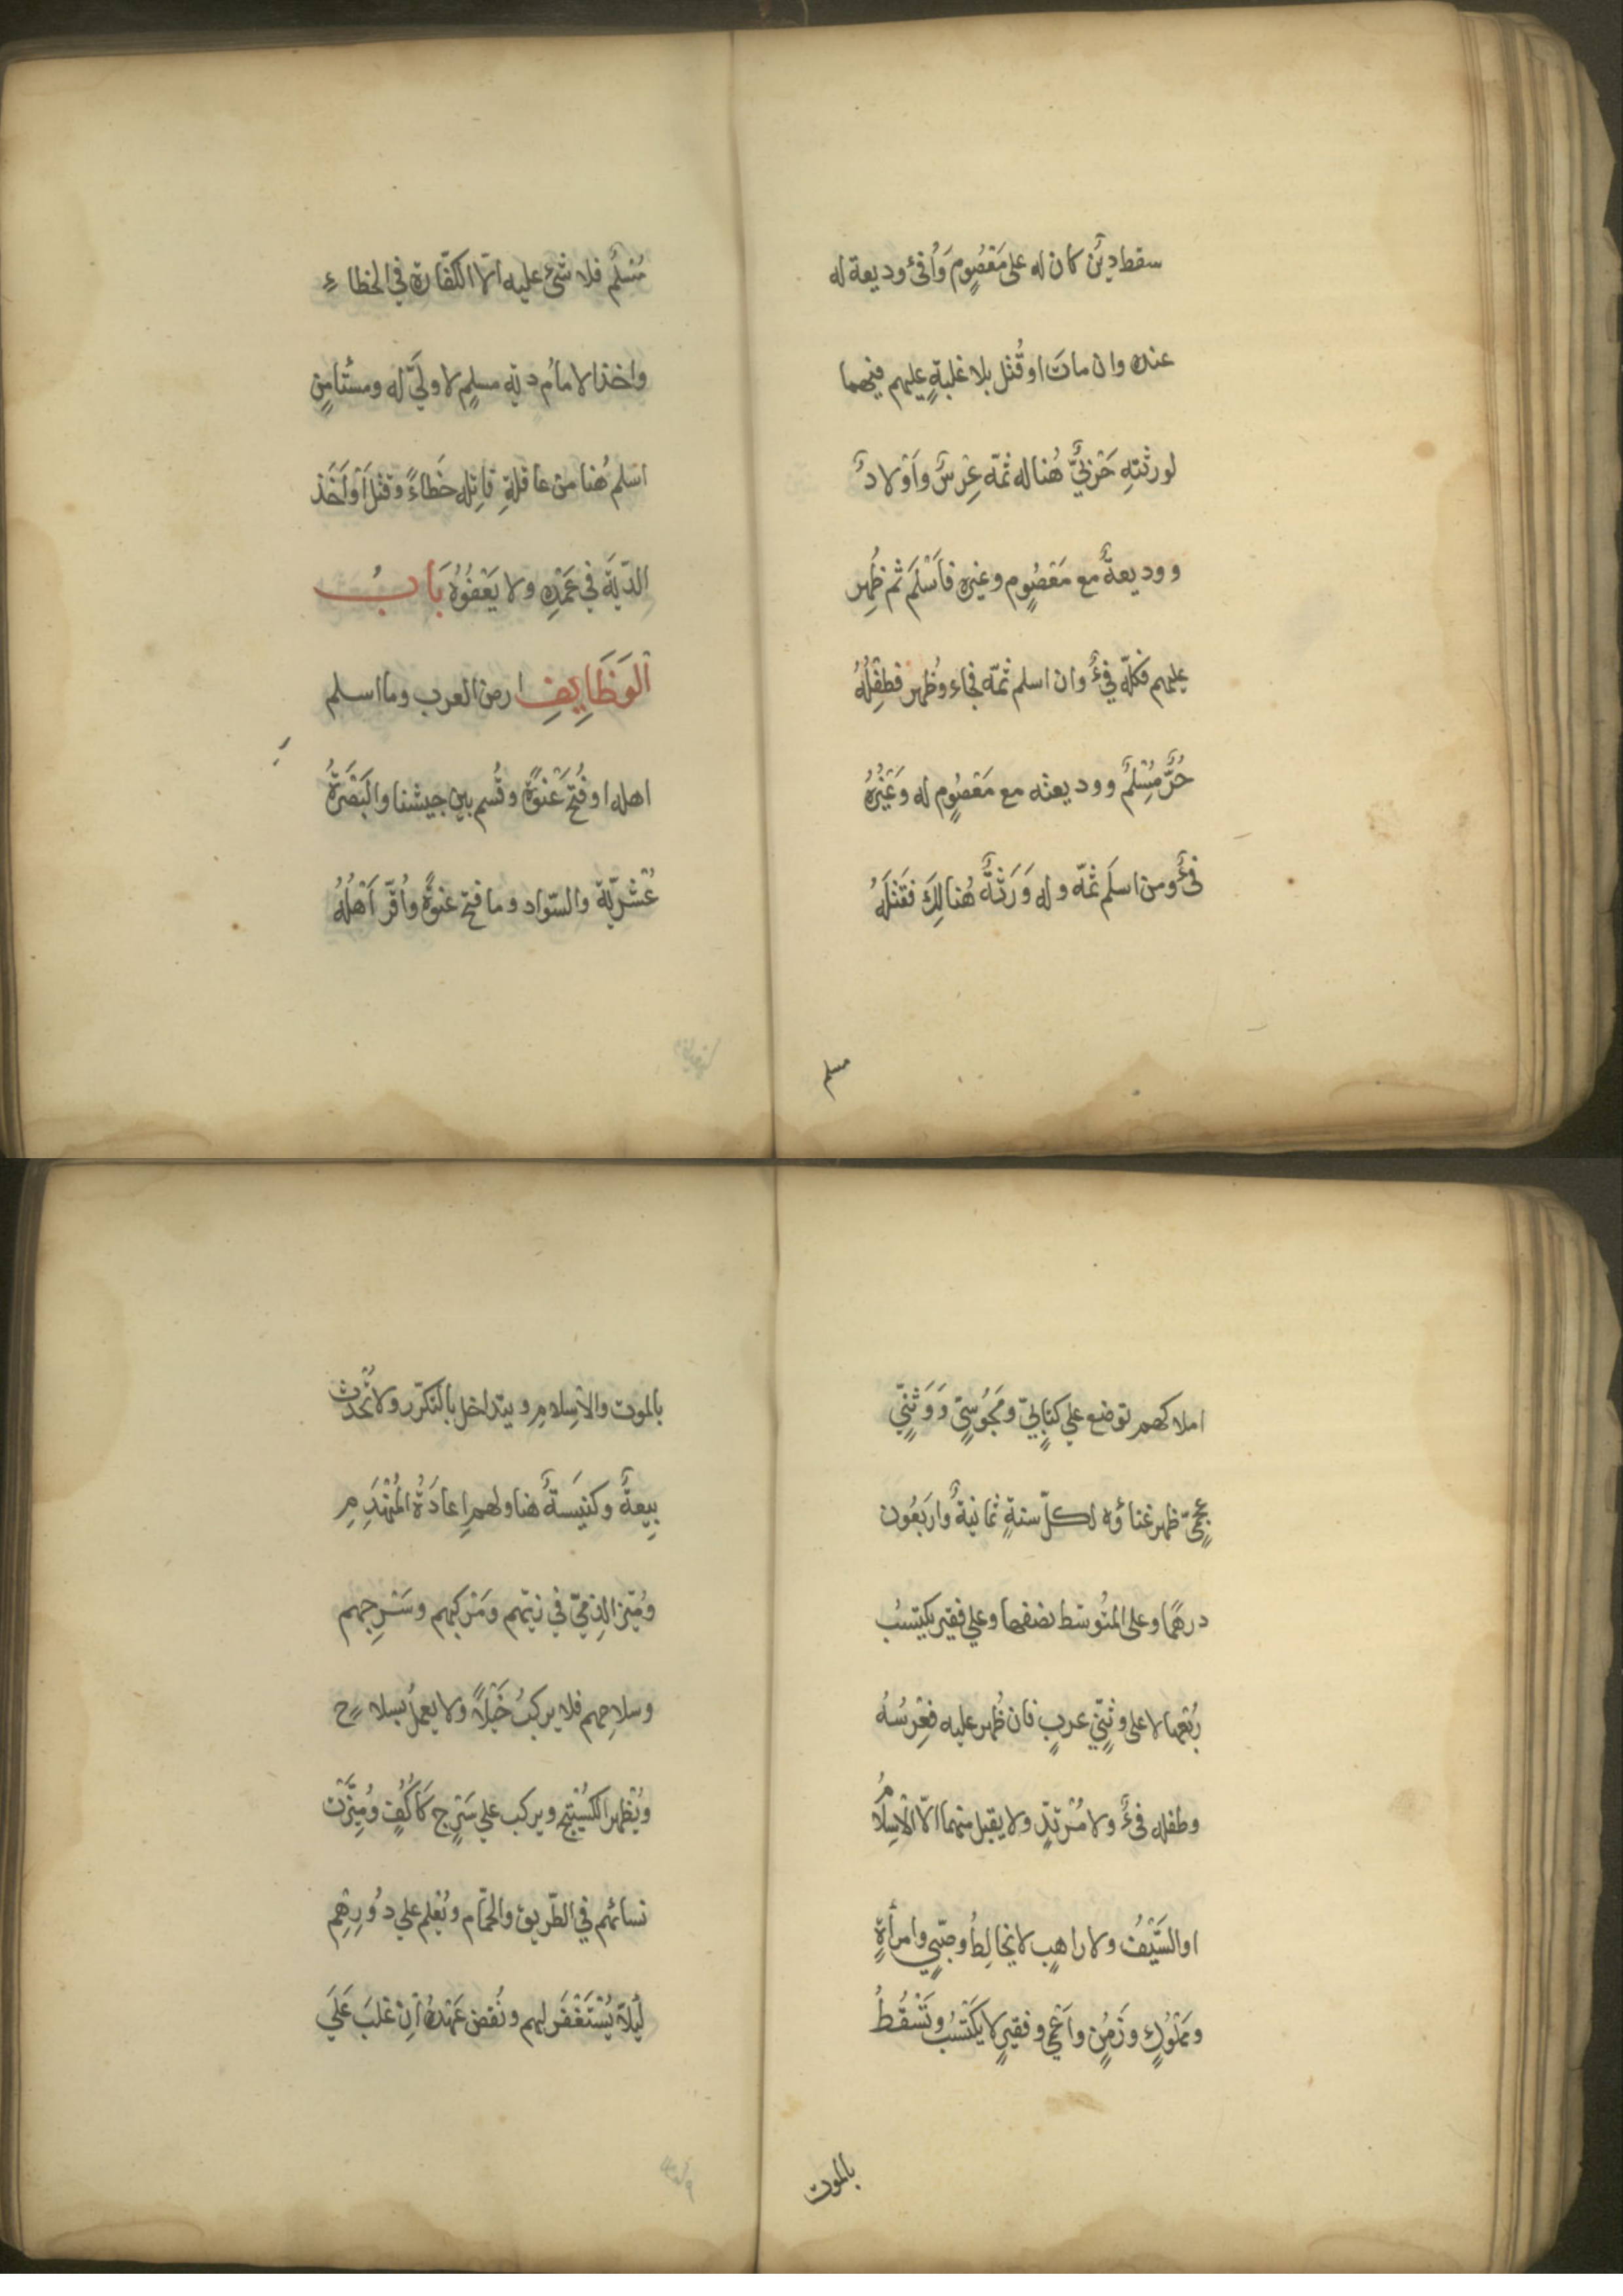 سقط دين كان له على مَعْصُومٍ وَأُفئ وديعة له
عنده وان مات او قُتل بلا غلبةٍ عليهم فهما
لورثتهِ حَرْبيٌّ هُنا له ثمّه عِرْسٌ وأوْلادٌ
ووديعةٌ مع مَعْصُومٍ وغيره فأسْلَمَ ثم ظُهِر
عليهم فكلّه فيءٌ وان اسلم ثمّه فجاء وظُهر فطفِلُهُ
حُرٌّ مُسْلِمٌ ووديعته مع مَعْصُومٍ له وَغَيْرُهُ
فئٌ ومن اسلَم ثمّه وله وَرَثَةٌ هُنالِكَ فقَتَلَهُ
مسلم
مُسْلِمٌ فلا شئ عليه الّا الكفّارة في الخطاءِ
واخذ الامامُ دية مسلمٍ لا وليَّ له ومستأمِنٍ
اسلم هُنا من عاقلةِ قاتِله خَطاءً وقتْل أوْ أخَذ
الدّيَةَ في عَمْدِهِ ولا يَعْفُوْهُ بَابُ
الوَظَايِفِ ارض العرب وما اسلم
اهله او فُتِحَ عَنْوَةً وقُسم بين جيشنا والبَصْرَةُ
عُشْريّة والسّواد وما فتح عنوةً وأُقرّ أهْلُهُ
املاكهم توضع علي كتابيٍّ ومَجُوسيٍّ وَوَثَنيٍّ
عجميٍّ ظهر غناؤه لكلّ سنةٍ ثمانيةٌ وارَبَعُون
درهمًا وعلى المتوسّط نصفها وعلي فقير يكتسبُ
رُبْعها لا على وثنيّ عربٍ فان ظُهر عليه فعِرْسُهُ
وطفله فئٌ ولا مُرْتدٍّ ولا يقبل منهما الّا الْاسِلامُ
او السَّيْفُ ولا راهبٍ لا يخالِطُ وصبّيٍ وامرأةٍ
ومَمْلُوكٍ وزَمِنٍ وأعْمي وفقيرٍ لا يَكْتَسُب وتَسْقُطُ
بالموت
بالموت والْاسِلامِ ويتداخل بالتكرّر ولا تُحْدَث
بِيعةٌ وكنيَسةٌ هنا ولهم إعادَةُ المُنْهَدِمِ
ومُيّز الذِميّ في زيّهم ومَرْكبهم وسَرِجهم
وسلاحِهم فلا يركبُ خَيْلًا ولا يعمل بسلاحٍ
ويُظهر الكُسْتِيج ويركب علي سَرْجٍ كأُكُفٍ ومُيِّزَتْ
نسائهم في الطّريق والحمّام ويُعْلم علي دُورِهِم
لَيلّا يُسْتَغْفَر لهم ونُقض عَهْدُهُ اِنْ غلبَ عَلَي